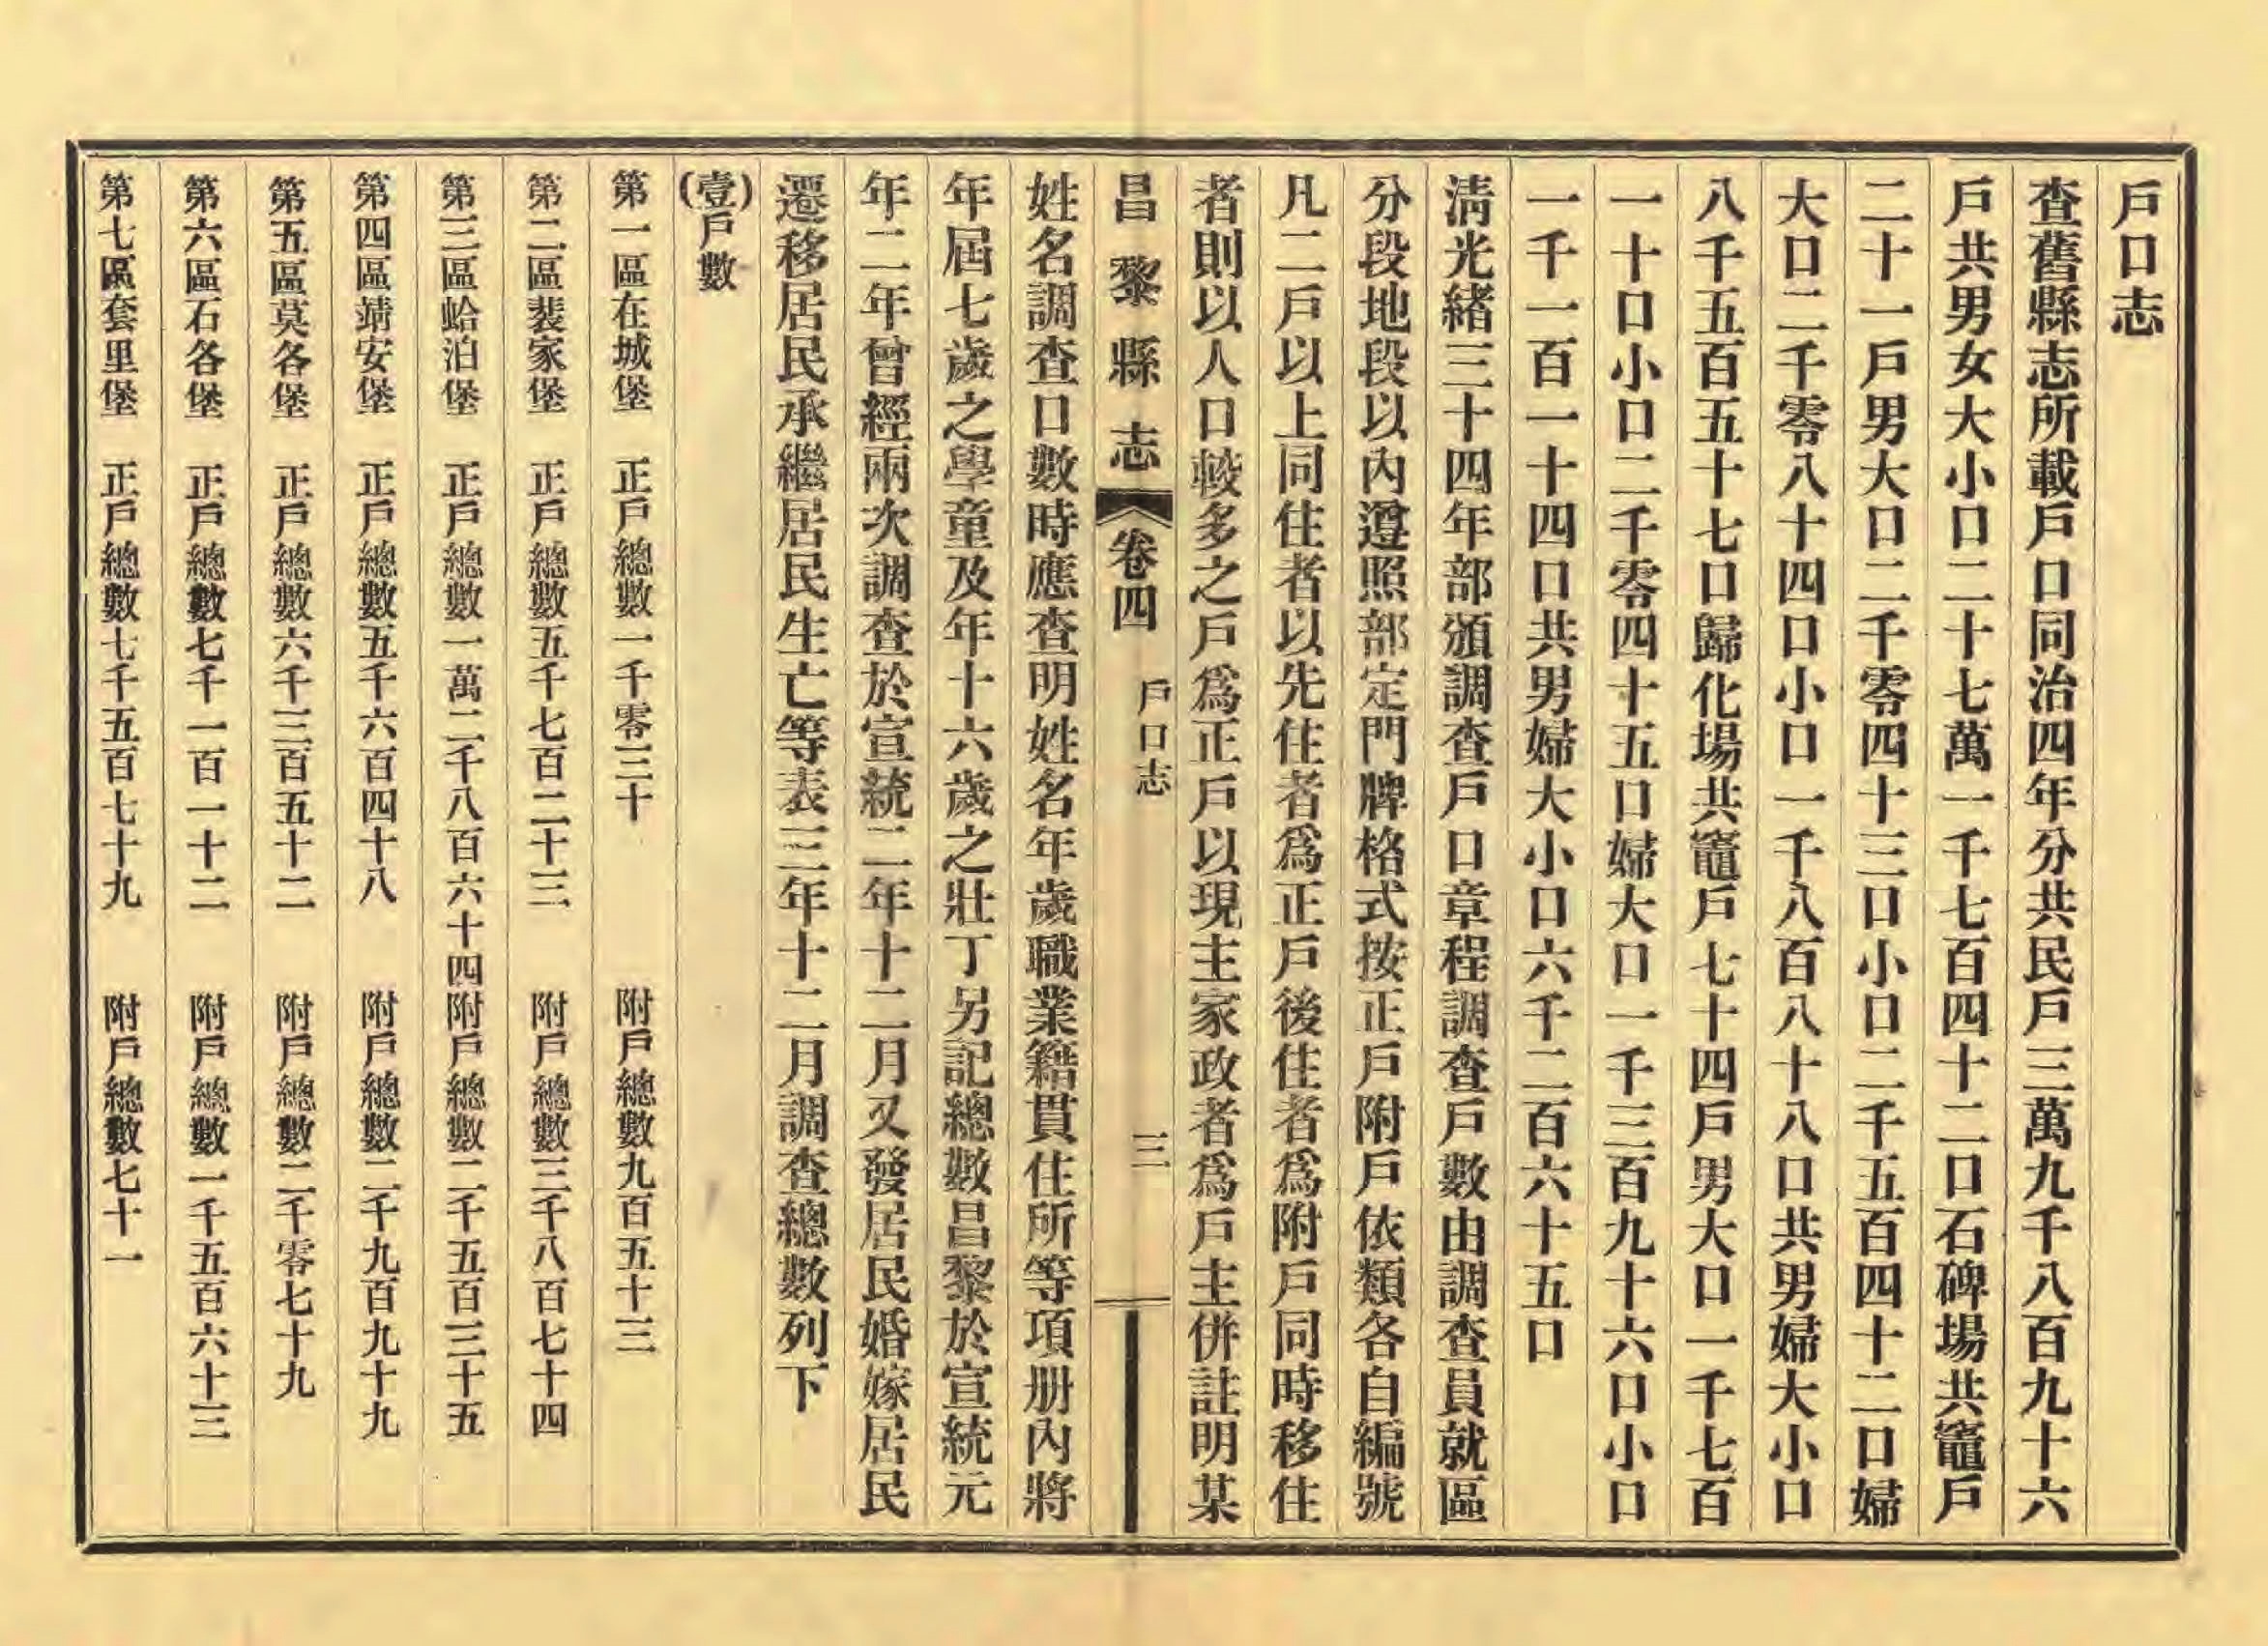 戶口志
查舊縣志所載戶口同治四年分共民戶三萬九千八百九十六
戶共男女大小口二十七萬一千七百四十二口石碑場共竈戶
二十一戶男大口二千零四十三口小口二千五百四十二口婦
大口二千零八十四口小口一千八百八十八口共男婦大小口
八千五百五十七口歸化場共竈戶七十四戶男大口一千七百
一十口小口二千零四十五口婦大口一千三百九十六口小口
一千一百一十四口共男婦大小口六千二百六十五口
淸光緒三十四年部頒調查戶口章程調查戶數由調查員就區
分段地段以內遵照部定門牌格式按正戶附戶依類各自編號
凡二戶以上同住者以先住者爲正戶後住者爲附戶同時移住
者則以人口較多之戶爲正戶以現主家政者爲戶主併註明某
昌黎縣志 卷四 戶口志 三
姓名調查口數時應查明姓名年歲職業籍貫住所等項册內將
年屆七歲之學童及年十六歲之壯丁另記總數昌黎於宣統元
年二年曾經兩次調查於宣統二年十二月又發居民婚嫁居民
遷移居民承繼居民生亡等表三年十二月調查總數列下
(壹)戶數
第一區在城堡 正戶總數一千零三十 附戶總數九百五十三
第二區裴家堡 正戶總數五千七百二十三 附戶總數三千八百七十四
第三區蛤泊堡 正戶總數一萬二千八百六十四 附戶總數二千五百三十五
第四區靖安堡 正戶總數五千六百四十八 附戶總數二千九百九十九
第五區莫各堡 正戶總數六千三百五十二 附戶總數二千零七十九
第六區石各堡 正戶總數七千一百一十二 附戶總數一千五百六十三
第七區套里堡 正戶總數七千五百七十九 附戶總數七十一